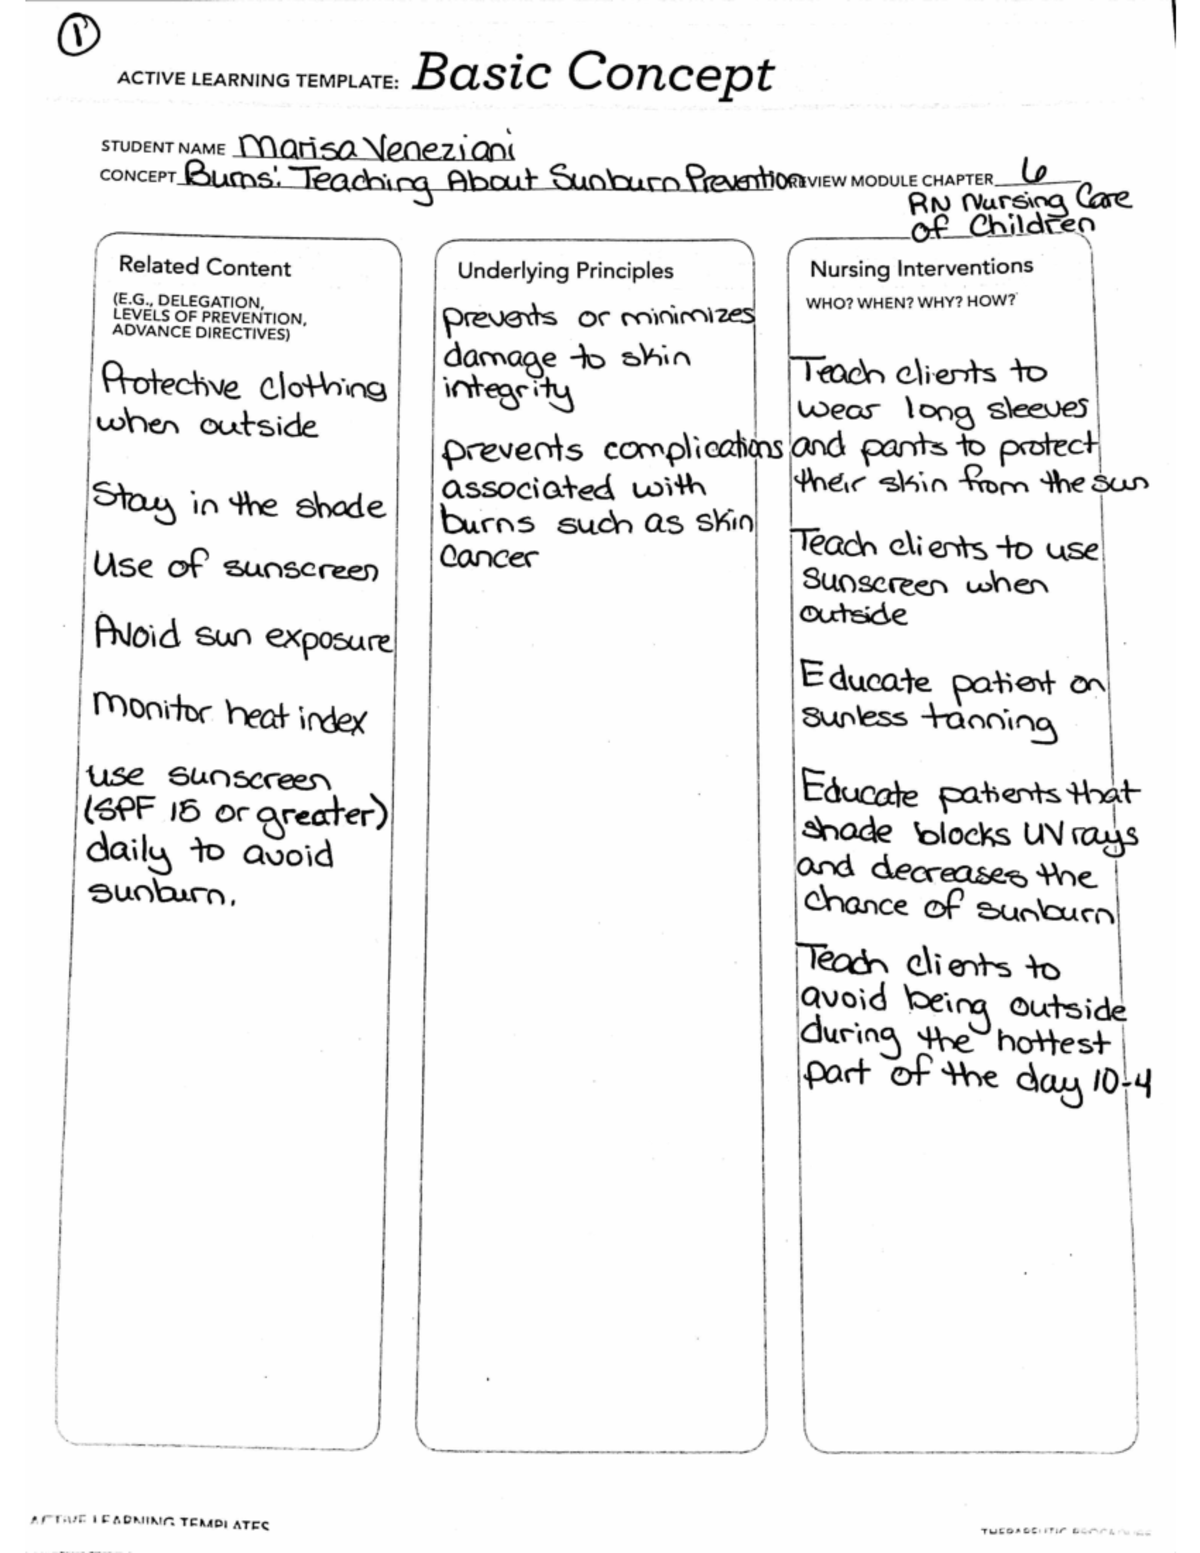 1
ACTIVE LEARNING TEMPLATE: Basic Concept
STUDENT NAME Marisa Veneziani
CONCEPT Burns: Teaching About Sunburn Prevention REVIEW MODULE CHAPTER 6
RN Nursing Care
of Children
Related Content
(E.G., DELEGATION,
LEVELS OF PREVENTION,
ADVANCE DIRECTIVES)
Protective clothing
when outside
Stay in the shade
Use of sunscreen
Avoid sun exposure
Monitor heat index
use sunscreen
(SPF 15 or greater)
daily to avoid
sunburn.
Underlying Principles
prevents or minimizes
damage to skin
integrity
prevents complications
associated with
burns such as skin
cancer
Nursing Interventions
WHO? WHEN? WHY? HOW?
Teach clients to
wear long sleeves
and pants to protect
their skin from the sun
Teach clients to use
sunscreen when
outside
Educate patient on
sunless tanning
Educate patients that
shade blocks UV rays
and decreases the
chance of sunburn
Teach clients to
avoid being outside
during the hottest
part of the day 10-4
ACTIVE LEARNING TEMPLATES